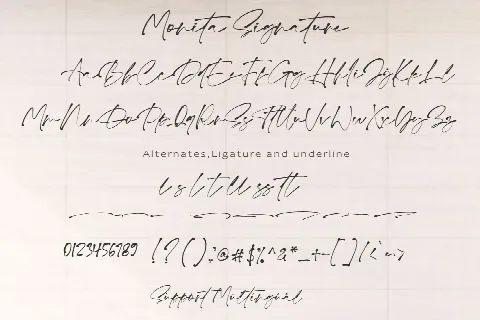 Monita Signature
Aa Bb Cc Dd Ee Ff Gg Hh Ii Jj Kk Ll
Mm Nn Oo Pp Qq Rr Ss Tt Uu Vv Ww Xx Yy Zz
Alternates,Ligature and underline
0123456789 !?():;@#$%^&*_+-[]/
Support Multilingual